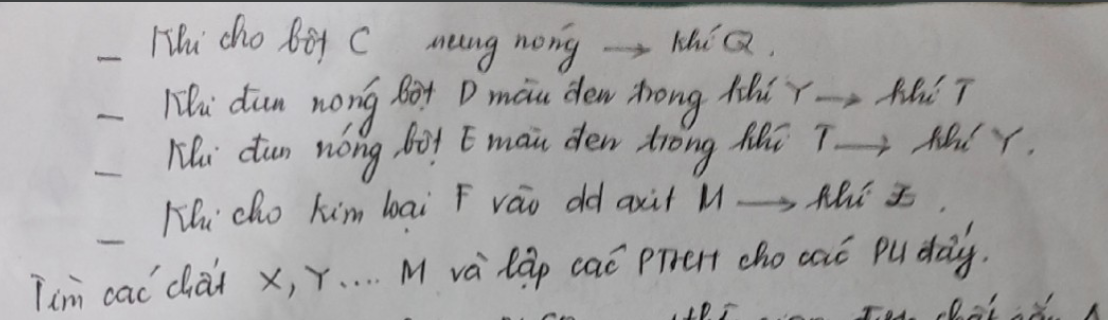 _ Khi cho bột C nung nóng → khí Q.
_ Khi đun nóng bột D màu đen trong khí Y → khí T
_ Khi đun nóng bột E màu đen trong khí T → khí Y.
_ Khi cho kim loại F vào dd axit M → khí Z.
Tìm các chất X, Y.... M và lập các PTHH cho các PƯ đấy.